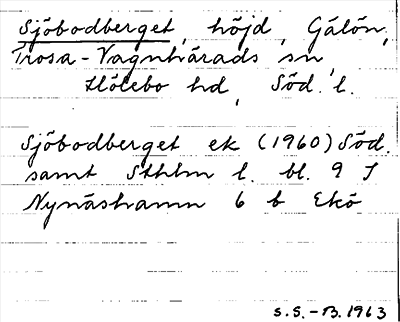 Sjöbodberget, höjd, Gålön,
Trosa-Vagnhärads sn,
Hölebo hd, Söd. l.
Sjöbodberget ek (1960) Söd.
samt Sthlm l. bl. 9 I
Nynäshamn 6 b Ekö
S.S.-B. 1963